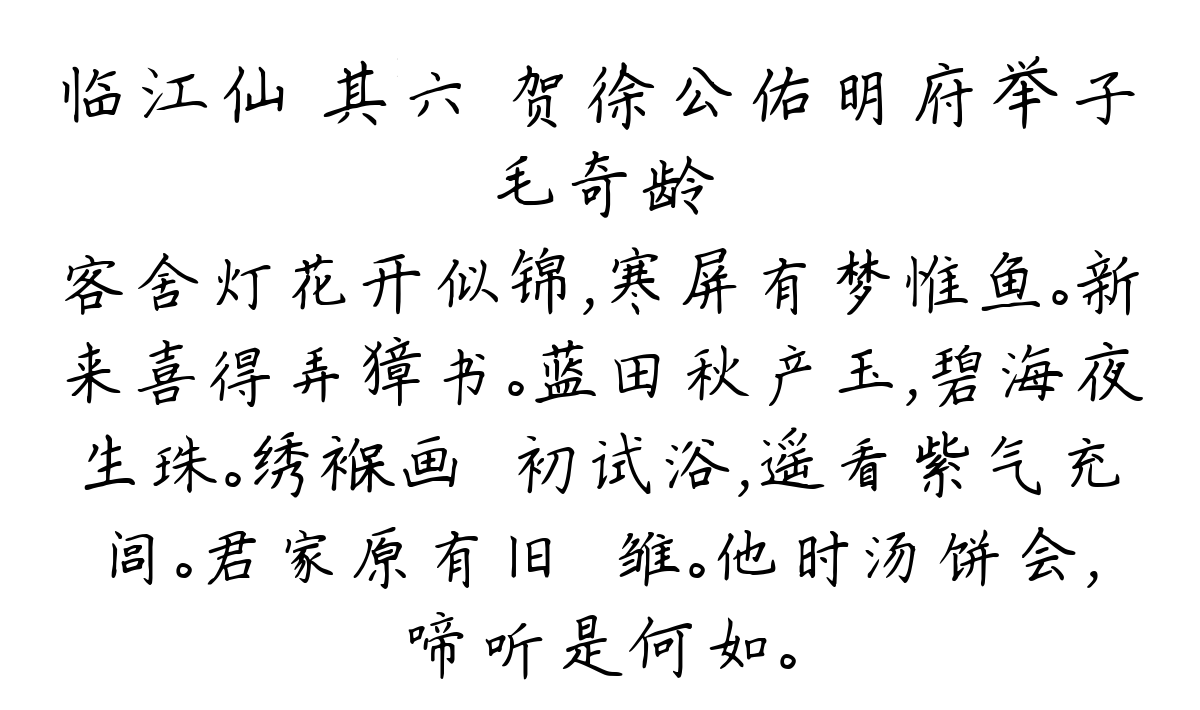 临江仙 其六 贺徐公佑明府举子
毛奇龄
客舍灯花开似锦,寒屏有梦惟鱼。新
来喜得弄獐书。蓝田秋产玉,碧海夜
生珠。绣褓画 初试浴,遥看紫气充
闾。君家原有旧 雏。他时汤饼会,
啼听是何如。